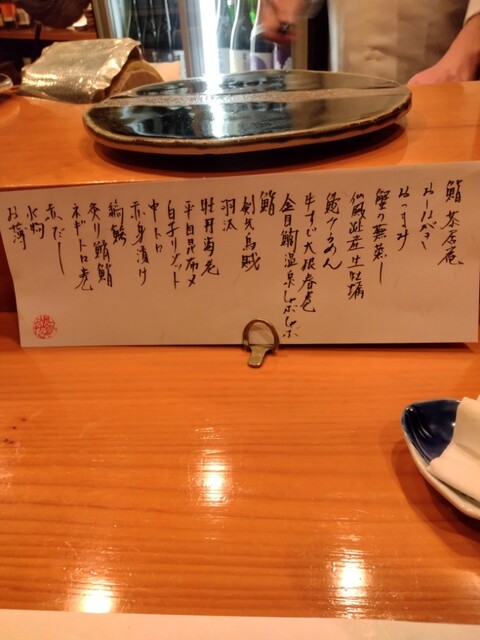 鮨 茶居庵
おしながき
おつまみ
蟹の蕪蒸し
仙鳳趾産生牡蠣
鮟肝あん
牛すじ大根春菊
金目鯛温泉しゃぶしゃぶ
鮨
剣先烏賊
羽太
牡丹海老
平目昆布〆
白子リゾット
中トロ
赤身漬け
縞鯵
炙り鯖鮨
ネギトロ巻
赤だし
水物
お薄